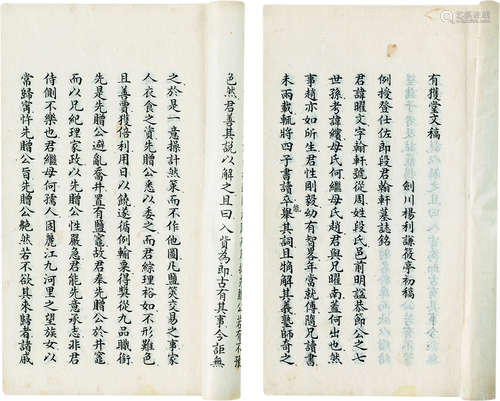 有獲堂文稿
劍川楊利謙筱亭初稿
例授登仕佐郎段君翰軒墓誌銘
君諱曜文字翰軒號從周姓段氏邑前明謚恭節公之七
世孫考諱纘母氏何繼母氏趙君與兄曜南蓋何出也然
事趙亦如所生君性則毅幼有智畧年當就傅隨兄讀書
未兩載輒將四子書讀卒舉其詞且犄解其義塾師奇之
能
色然君善其說以解之且曰入貲為郎古有其事今詎無
之於是一意操計然策而不作他圖凡盬筴交易之事家
人衣食之資先贈公悉以委之而君綜理裕如不形難色
且善賈獲倍利用日以饒遂循例輸粟得奬從九品職銜
先是先贈公避亂喬井置有盬竈故君奉先贈公於井竈
而以兄紀理家政以先贈公性嚴急君能先意承志非君
侍側不樂也君繼母何孺人固麗江九河里之望族女以
常歸寕忤先贈公旨先贈公艴然若不欲其來歸者諸戚